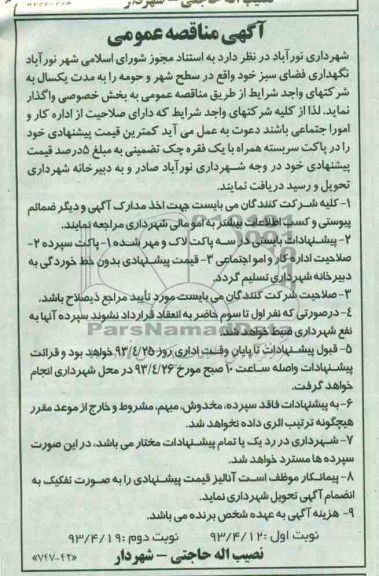 نصیب اله حاجتی - شهردار
آگهی مناقصه عمومی
شهرداری نورآباد در نظر دارد به استناد مجوز شورای اسلامی شهر نورآباد
نگهداری فضای سبز خود واقع در سطح شهر و حومه را به مدت یکسال به
شرکتهای واجد شرایط از طریق مناقصه عمومی به بخش خصوصی واگذار
نماید. لذا از کلیه شرکتهای واجد شرایط که دارای صلاحیت از اداره کار و
امورا جتماعی باشند دعوت به عمل می آید کمترین قیمت پیشنهادی خود
را در پاکت سربسته همراه با یک فقره چک تضمینی به مبلغ ۵درصد قیمت
پیشنهادی خود در وجه شهرداری نورآباد صادر و به دبیرخانه شهرداری
تحویل و رسید دریافت نمایند.
۱- کلیه شرکت کنندگان می بایست جهت اخذ مدارک آگهی و دیگر ضمائم
پیوستی و کسب اطلاعات بیشتر به امو مالی شهرداری مراجعه نمایند.
۲- پیشنهادات بایستی در سه پاکت لاک و مهر شده ۱- پاکت سپرده ۲-
صلاحیت اداره کار و امو اجتماعی ۳- قیمت پیشنهادی بدون خط خوردگی به
دبیرخانه شهرداری تسلیم گردد.
۳- صلاحیت شرکت کنندگان می بایست مورد تأیید مراجع ذیصلاح باشد.
۴- درصورتی که نفر اول تا سوم حاضر به انعقاد قرارداد نشوند سپرده آنها به
نفع شهرداری ضبط خواهد شد.
ParsNamadData
۵- قبول پیشنهادات تا پایان وقت اداری روز ۹۳/۴/۲۵ خواهد بود و قرائت
پیشنهادات واصله ساعت ۱۰ صبح مورخ ۹۳/۴/۲۶ در محل شهرداری انجام
خواهد گرفت.
۶- به پیشنهادات فاقد سپرده، مخدوش، مبهم، مشروط و خارج از موعد مقرر
هیچگونه ترتیب اثری داده نخواهد شد.
۷- شهرداری در رد یک یا تمام پیشنهادات مختار می باشد، در این صورت
سپرده ها مسترد خواهد شد.
۸- پیمانکار موظف است آنالیز قیمت پیشنهادی را به صورت تفکیک به
انضمام آگهی تحویل شهرداری نماید.
۹- هزینه آگهی به عهده شخص برنده می باشد.
نوبت اول :۹۳/۴/۱۲ نوبت دوم :۹۳/۴/۱۹
نصیب اله حاجتی - شهردار «۷۴۷-۴۲»